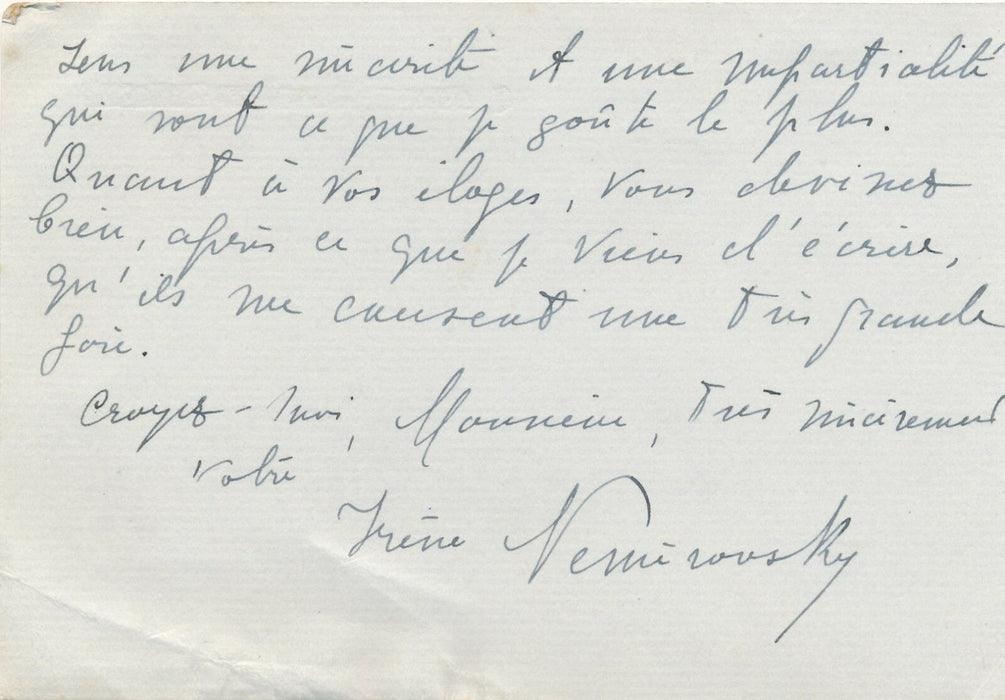 sens une sincérité et une impartialité
qui sont ce que je goûte le plus.
Quant à vos éloges, vous devinez
bien, après ce que je viens d'écrire,
qu'ils me causent une très grande
joie.
Croyez-moi, Monsieur, très sincèrement
vôtre
Irène Nemirovsky